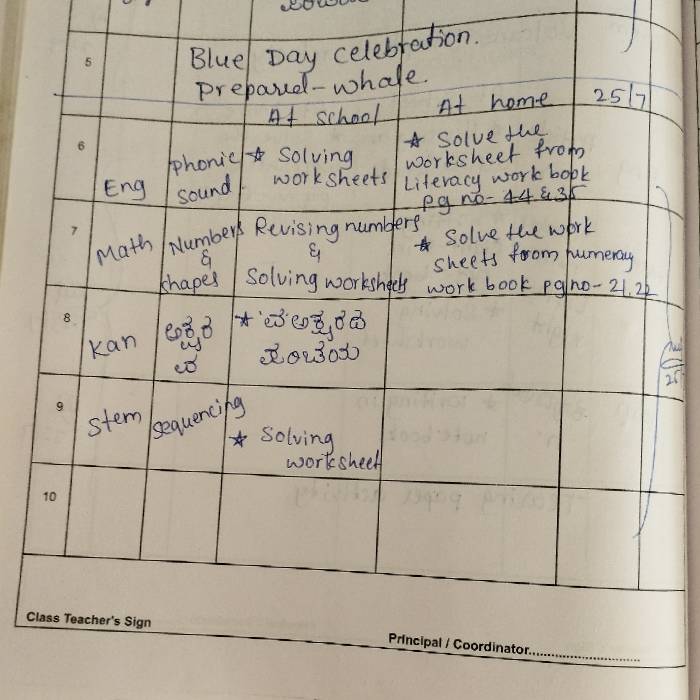 5 Blue Day celebration.
Prepared - whale.
At school At home 25/7
6 Eng Phonic sound. * Solving worksheets * Solve the worksheet from Literacy work book pg no - 44 & 35
7 Math Numbers & shapes Revising numbers & Solving worksheets * Solve the work sheets from numeracy work book pg no - 21, 22
8 Kan ಅಕ್ಷರ ವ * 'ವ' ಅಕ್ಷರದ
9 Stem sequencing * Solving worksheet
10
Class Teacher's Sign
Principal / Coordinator